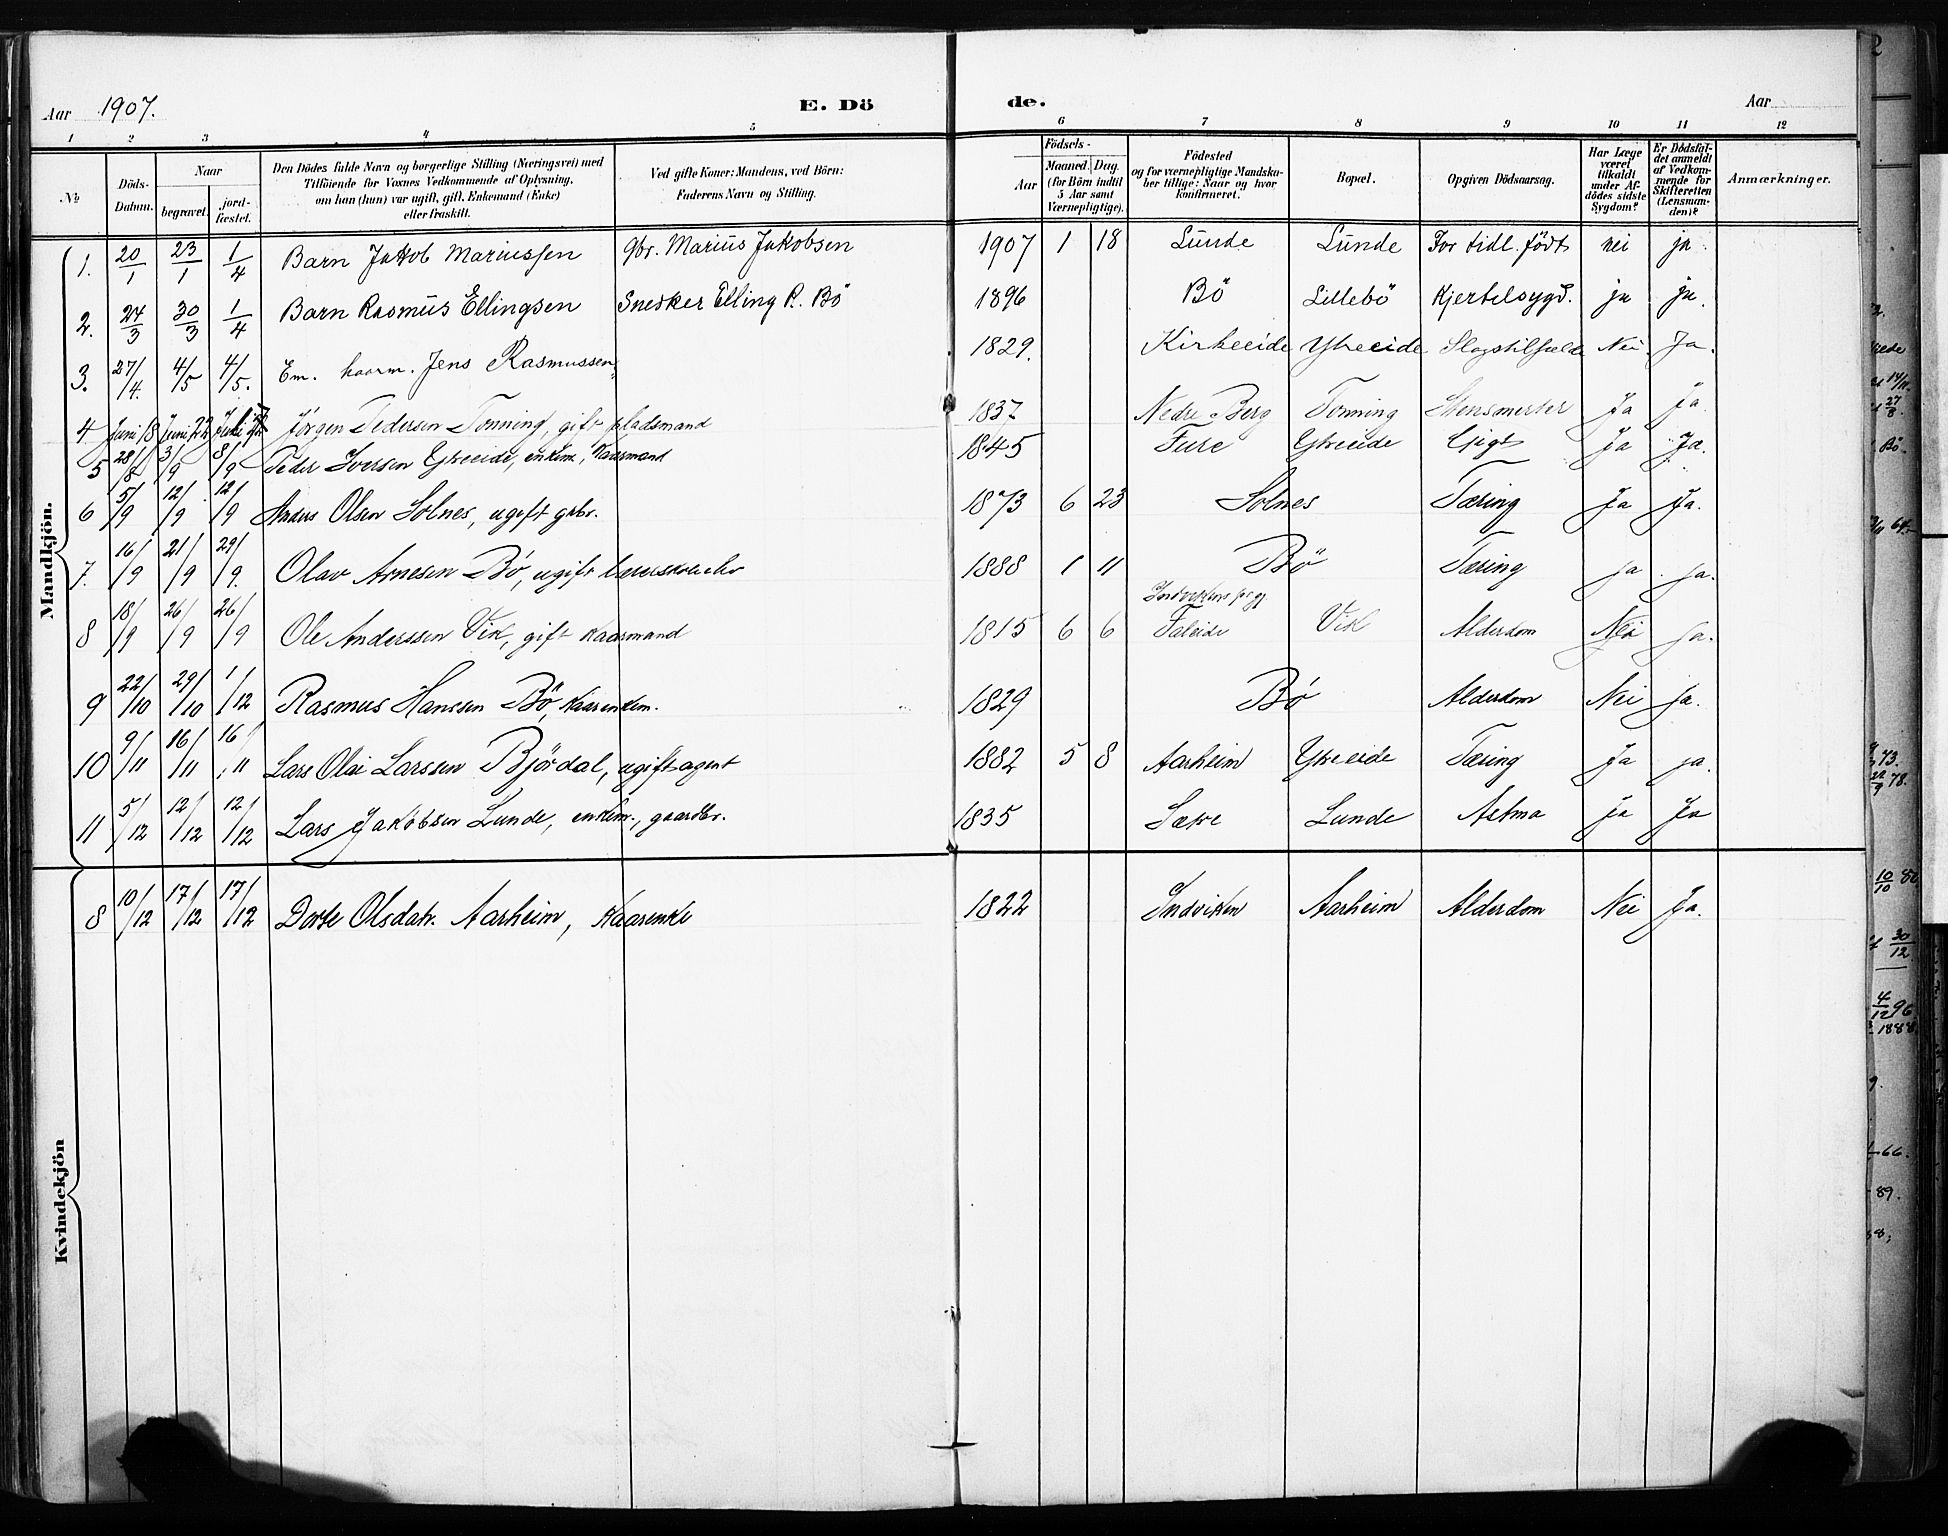 Aar 1907. E. Döde. Aar
1 2 3 4 5 6 7 8 9 10 11 12
№ Döds-Datum. Naar begravet. jordfæstet. Den Dödes fulde Navn og borgerlige Stilling (Næringsvei) med Tilföiende for Voxnes Vedkommende af Oplysning, om han (hun) var ugift, gift, Enkemand (Enke) eller fraskilt. Ved gifte Koner: Mandens, ved Börn: Faderens Navn og Stilling. Födsels- Aar Maaned. Dag. (for Börn indtil 5 Aar samt Værnepligtige). Födested og for værnepligtige Mandskaber tillige: Naar og hvor konfirmeret. Bopæl. Opgiven Dödsaarsag. Har Læge været tilkaldt under Afdödes sidste Sygdom? Er Dödsfaldet anmeldt af Vedkommende for Skifteretten (Lensmanden)? Anmærkninger.
Mandkjön.
1. 20/1 23/1 1/4 Barn Jakob Mariussen gbr. Marius Jakobsen 1907 1 18 Lunde Lunde For tidl. født nei ja
2. 24/3 30/3 1/4 Barn Rasmus Ellingsen Snedker Elling R. Bö 1896 Bö Lillebö Kjertelsygd. ja ja.
3. 27/4. 4/5 4/5. Em. kaarm. Jens Rasmussen 1829. Kirkeeide Ytreeide Slagtilfælde Nei. Ja.
4. Juni 18 Juni 22 Juli Jørgen Pedersen Tonning, gift pladsmand 1837 Nedre Berg Tonning Stensmerter Ja Ja
5 28/8 3/9 8/9 Peder Iversen Ytreeide, enkem., kaarmand 1845 Fure Ytreeide Gigt Ja Ja.
6 5/9 12/9 12/9 Anders Olsen Solnes, ugift gbr. 1873 6 23 Solnes Tæring Ja Ja.
7. 16/9 21/9 29/9. Olav Arnesen Bö, ugift lærerskoleelev 1888 1 11 Bö Tæring ja ja.
8 18/9 26/9 26/9 Ole Anderssen Vik, gift Kaarmand 1815 6 6 Indvikens prgj. Faleide Vik Alderdom Nei ja.
9 22/10 29/10 1/12 Rasmus Hanssen Bö, kaarenkem. 1829 Bö Alderdom Nei ja.
10 9/11 16/11 16/11 Lars Olai Larssen Björdal, ugift agent 1882 5 8 Aarheim Ytreeide Tæring Ja ja.
11 5/12 12/12 12/12 Lars Jakobsen Lunde, enkem., gaardbr. 1835 Sæte Lunde Astma Ja Ja
Kvindekjön
8 10/12 17/12 17/12 Dorte Olsdatr. Aarheim, Kaarenke 1822 Indviken Aarheim Alderdom Nei Ja.